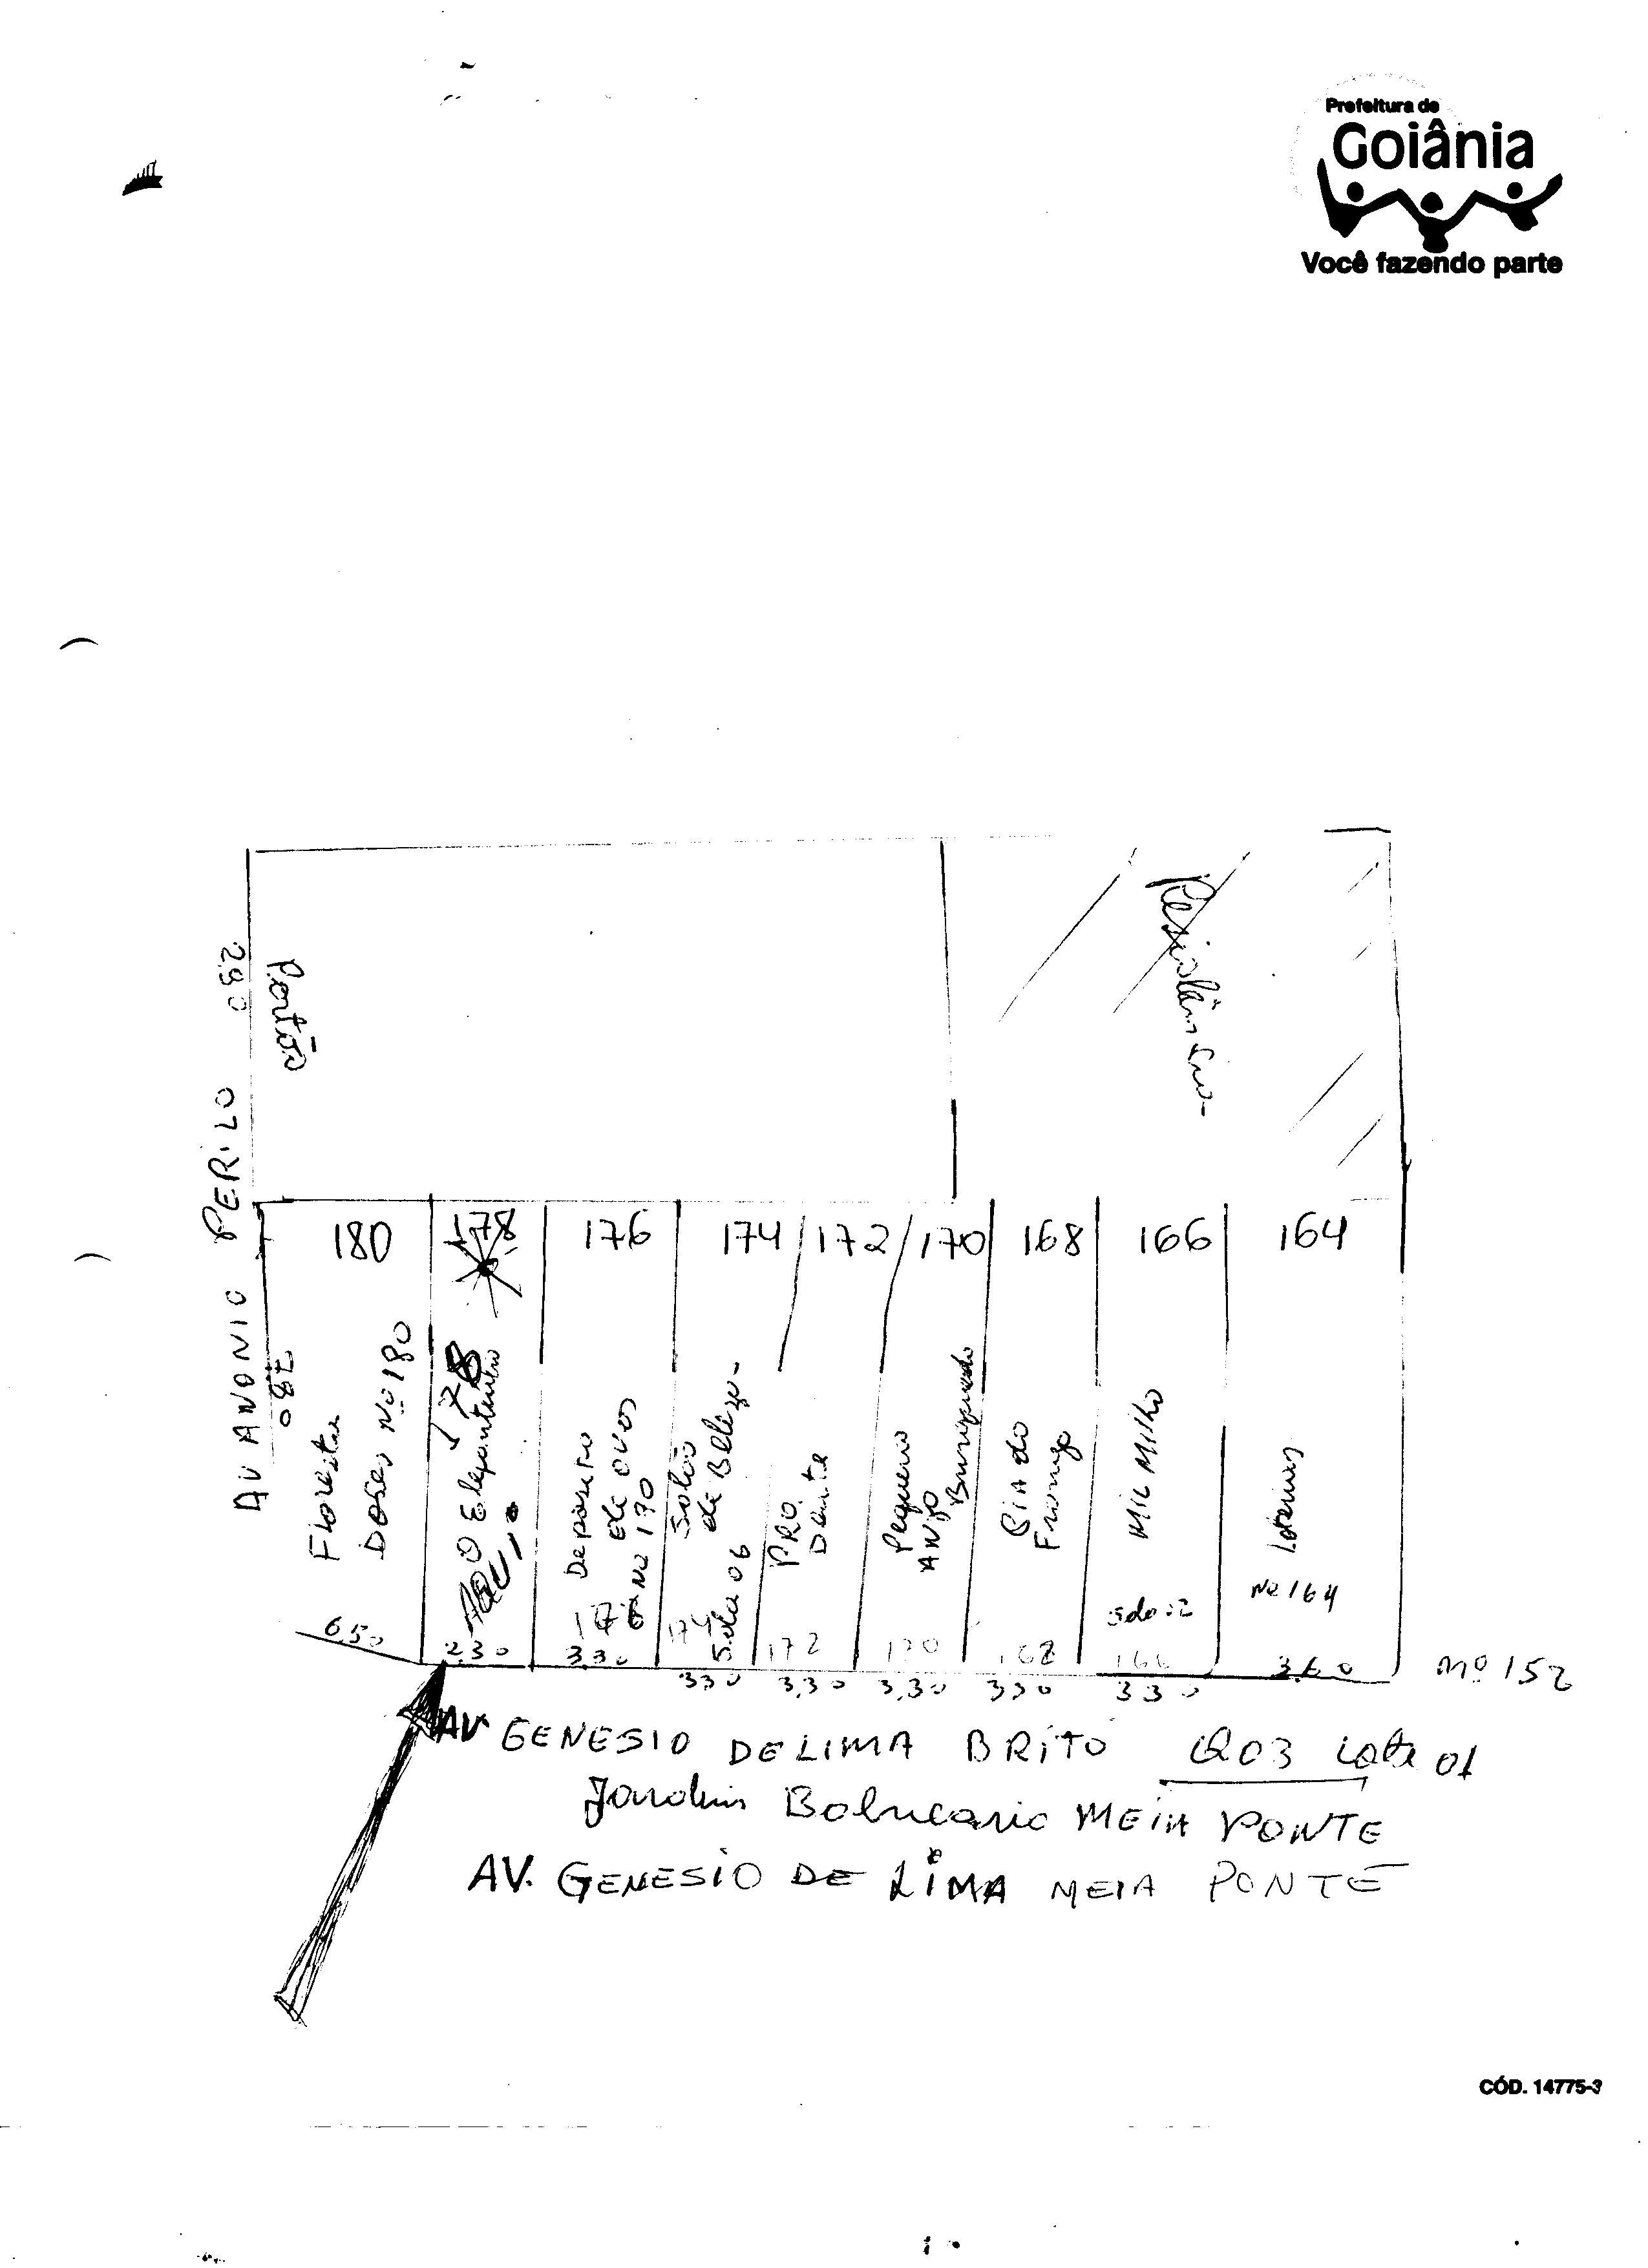 Prefeitura de
Goiânia
Você fazendo parte
Residên
290
Portão
AV ANONIO PERILO
7,80
180
178
176
174
172
170
168
166
164
Floresta
Doses Nº 180
6,50
178
2,30
Deposito
de ovos
Nº 170
176
3,30
Salão
de Beleza
Sala 06
174
330
PRO
Dente
172
3,30
Pequeno
ANJO
Brinquedo
170
3,30
CIA do
Frango
168
330
MIL MILHO
166
330
Loterias
Nº 164
3,60
Nº 152
AV GENESIO DE LIMA BRITO Q03 Lote 01
Jardim Balneario MEIA PONTE
AV. GENESIO DE LIMA MEIA PONTE
CÓD. 14775-3